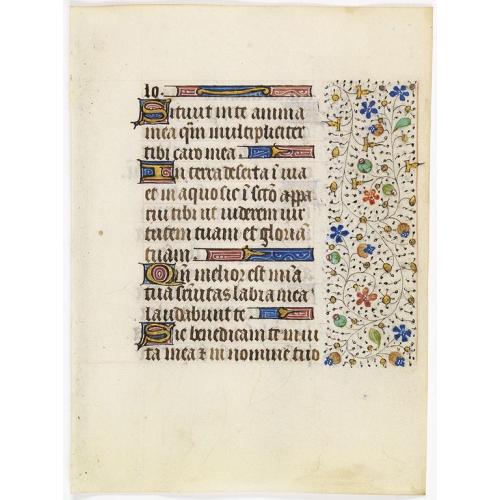 lo.
Sitiuit in te anima
mea qm multipliciter
tibi caro mea.
In terra deserta ī uia
et in aquo sic ī sc̄o appa
rui tibi ut uiderem uir
tutem tuam et gloriā
tuam.
Qm̄ melior est mīa
tua sr̄ uitas labia mea
laudabunt te
Sic benedicam te in ui
ta mea ⁊ in nomine tuo